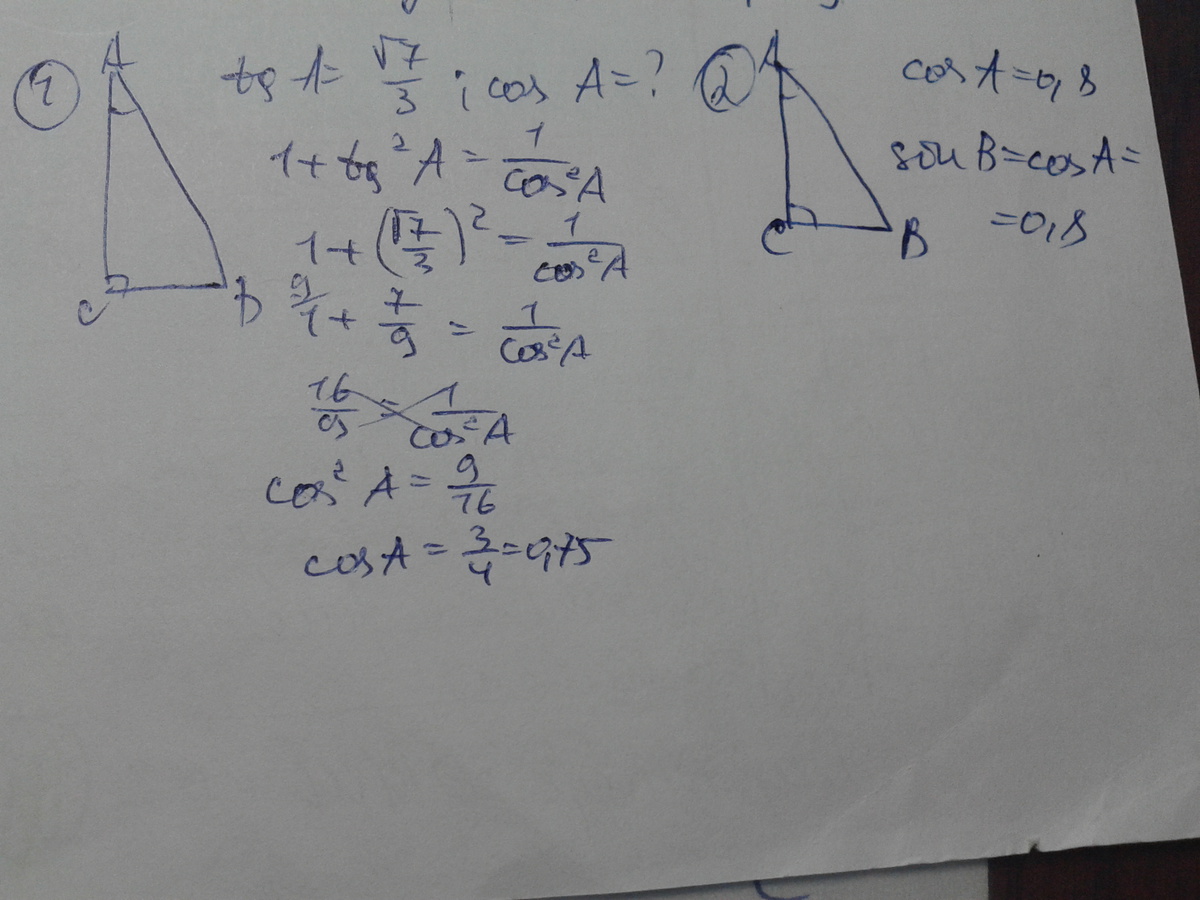 ① A
tg A = √7/3 ; cos A = ?
1 + tg² A = 1/cos²A
1 + (√7/3)² = 1/cos²A
C B
9/1 + 7/9 = 1/cos²A
16/9 = 1/cos²A
cos² A = 9/16
cos A = 3/4 = 0,75
② A
cos A = 0,8
sin B = cos A =
= 0,8
C B